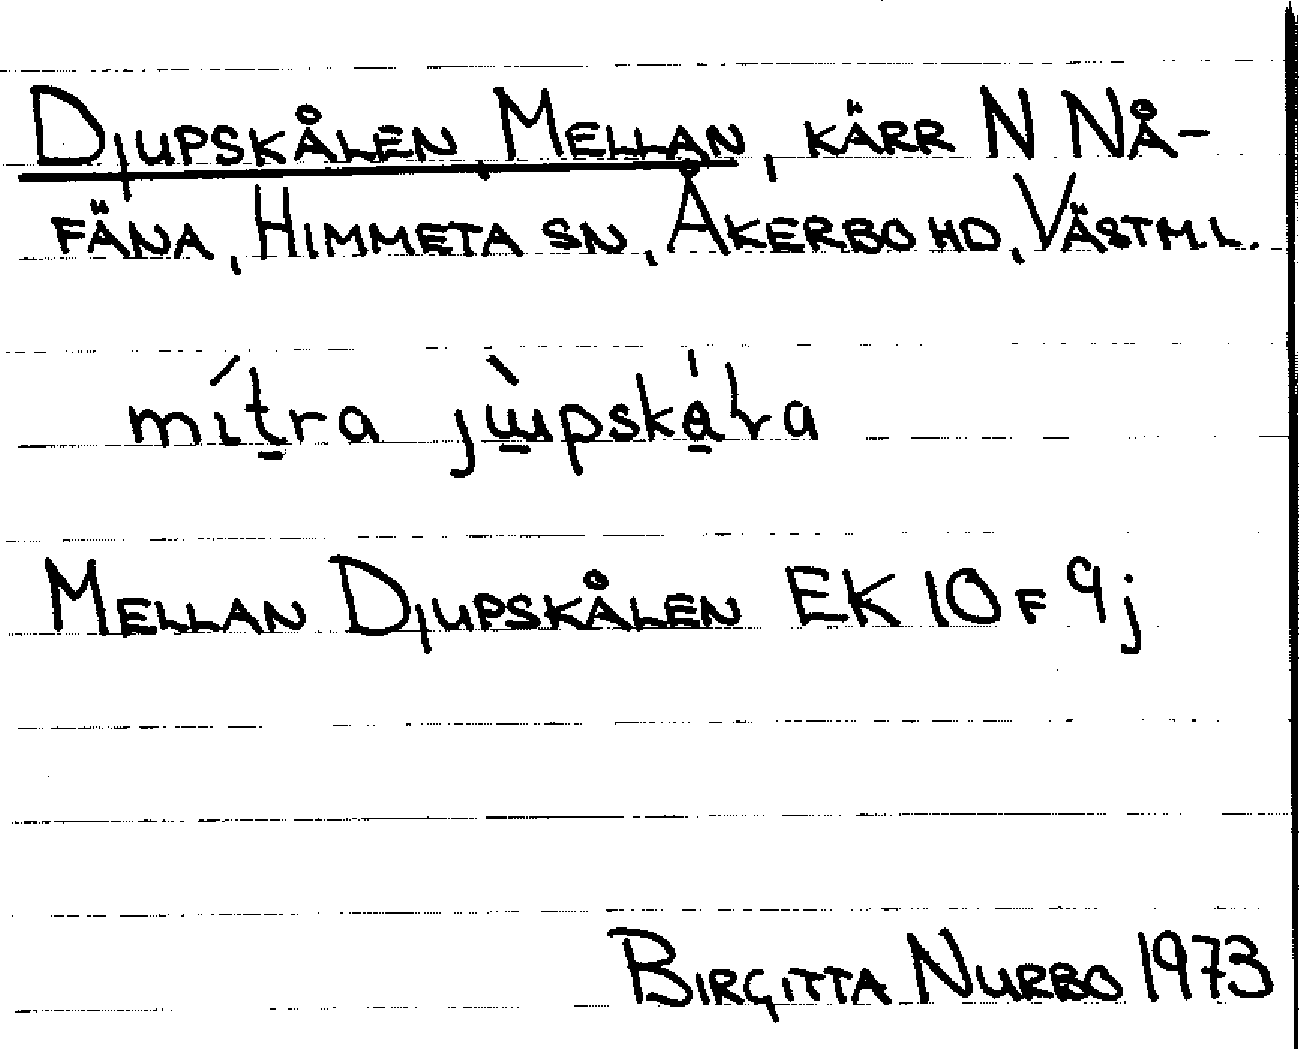 Djupskålen, Mellan, kärr N Nå-
fäna, Himmeta sn, Åkerbo hd, Västm. l.
mítra jùpskála
Mellan Djupskålen EK 10 F 9j
Birgitta Nurbo 1973